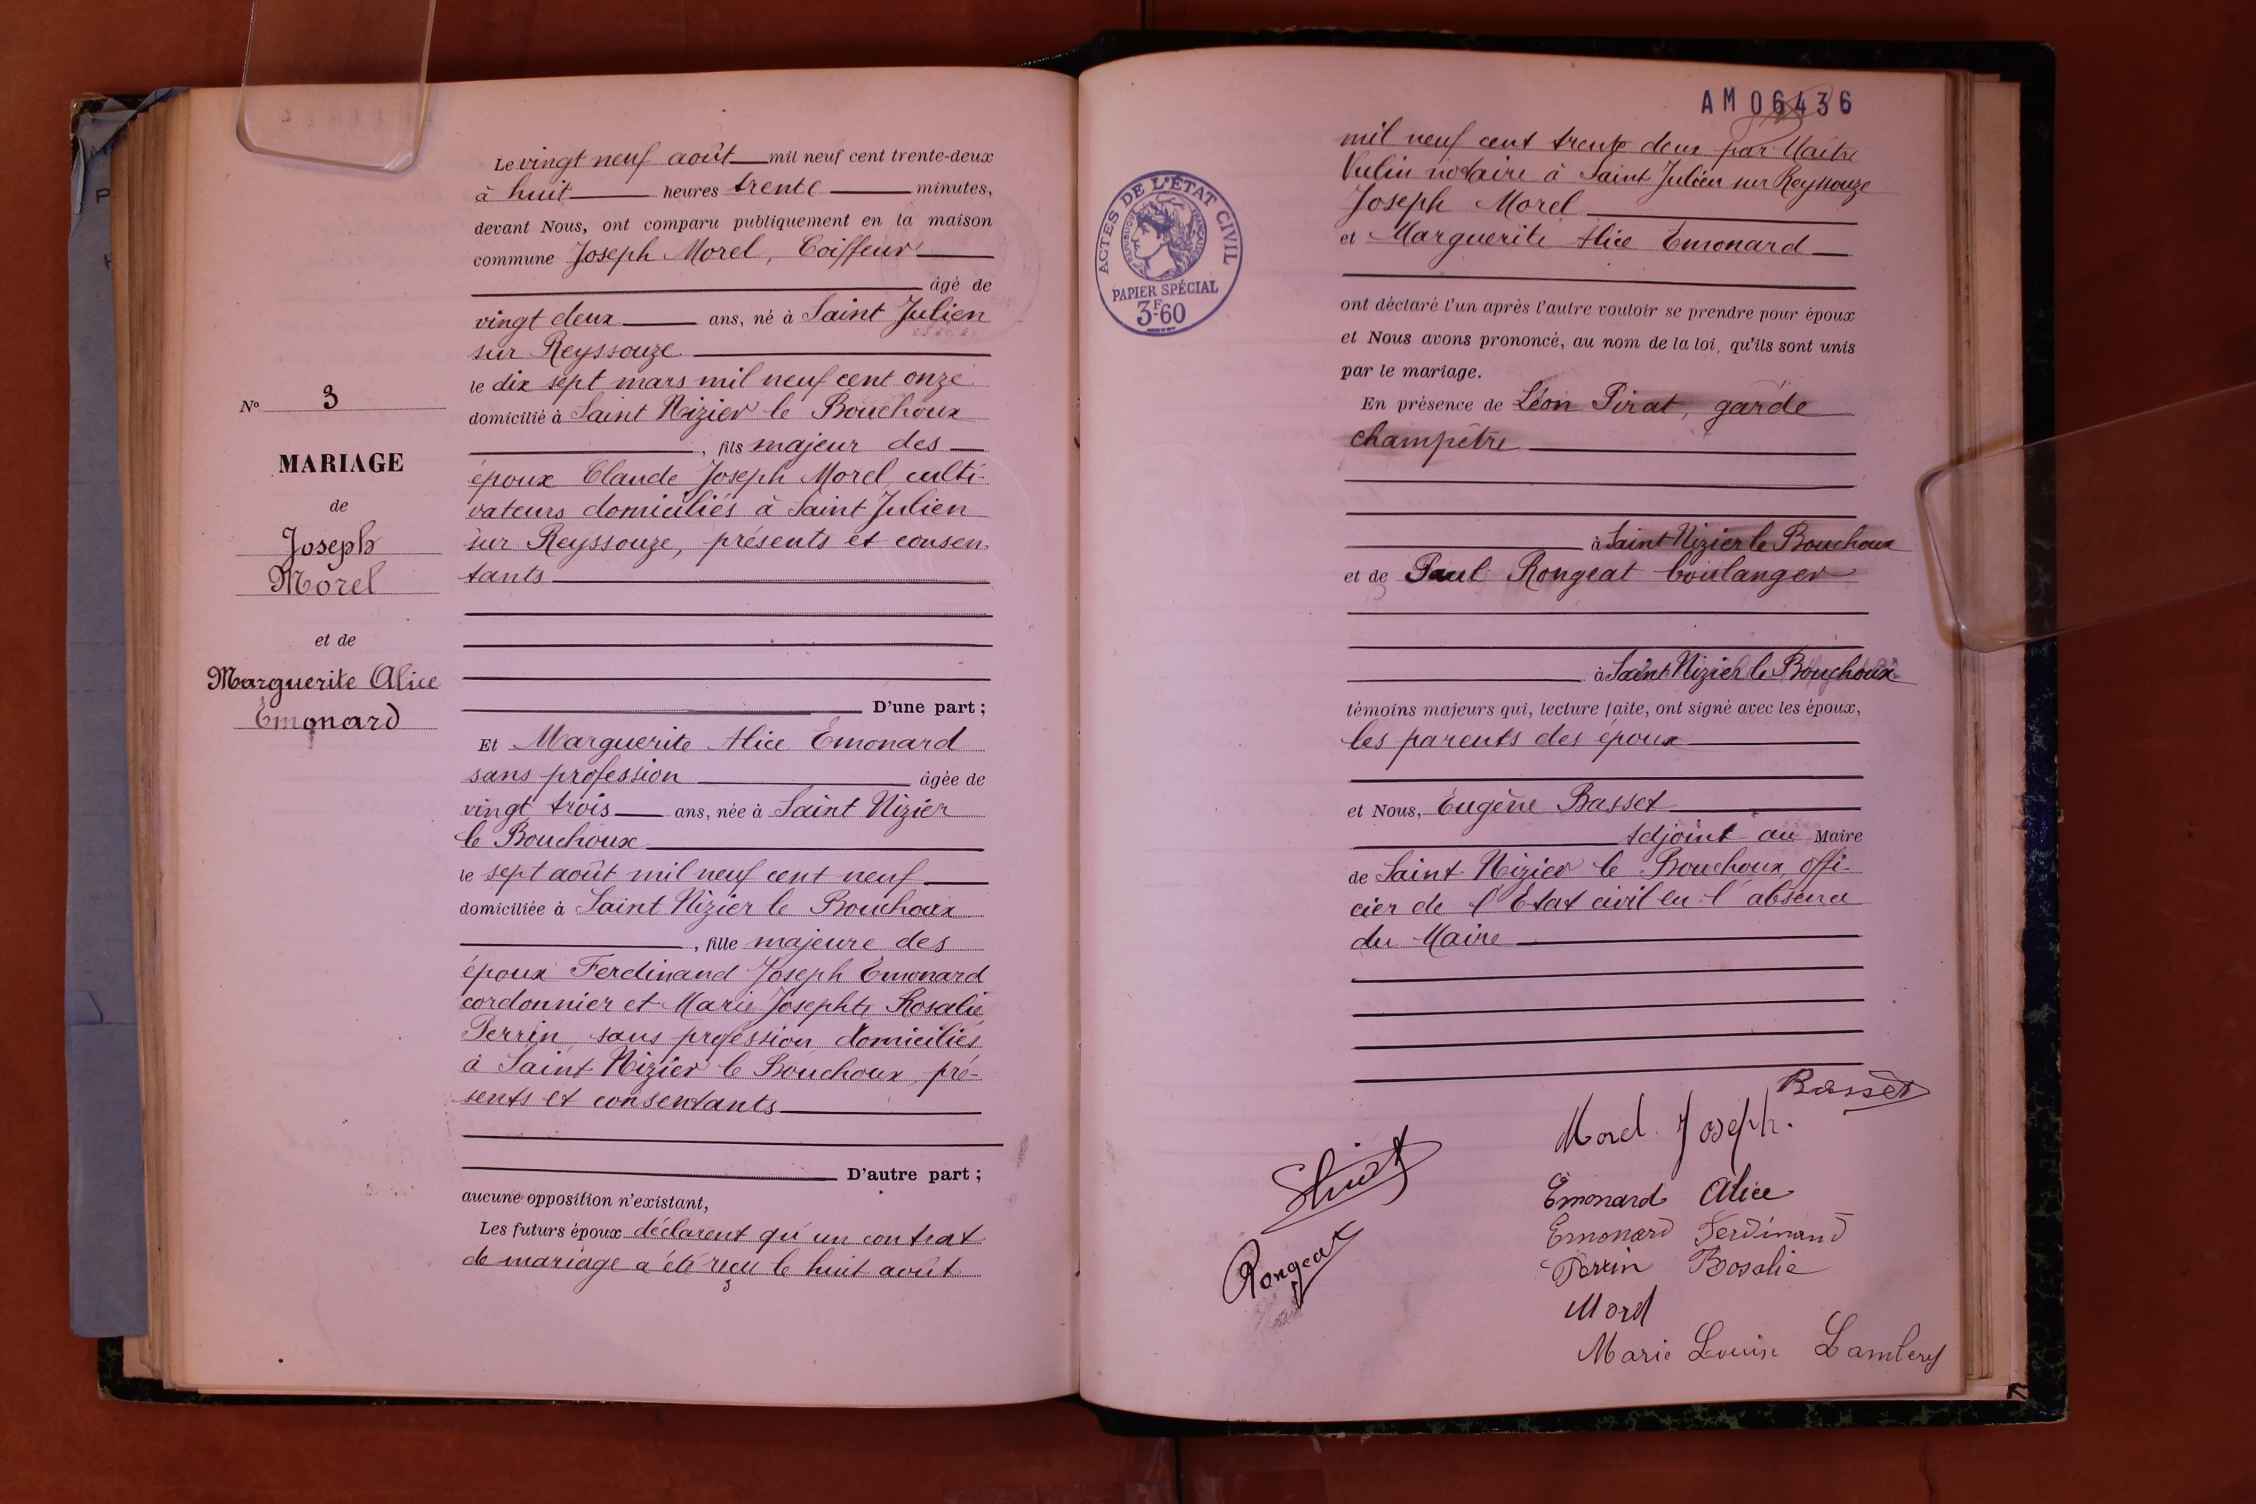 N° 3
MARIAGE
de
Joseph
Morel
et de
Marguerite Alice
Emonard
Le vingt neuf août mil neuf cent trente-deux
à huit heures trente minutes,
devant Nous, ont comparu publiquement en la maison
commune Joseph Morel, Coiffeur
âgé de
vingt deux ans, né à Saint Julien
sur Reyssouze
le dix sept mars mil neuf cent onze
domicilié à Saint Nizier le Bouchoux
, fils majeur des
époux Claude Joseph Morel, culti-
vateurs domiciliés à Saint Julien
sur Reyssouze, présents et consen
tants
D'une part ;
Et Marguerite Alice Emonard
sans profession âgée de
vingt trois ans, née à Saint Nizier
le Bouchoux
le sept août mil neuf cent neuf
domiciliée à Saint Nizier le Bouchoux
, fille majeure des
époux Ferdinand Joseph Emonard
cordonnier et Marie Josephte Rosalie
Perrin sans profession domiciliés
à Saint Nizier le Bouchoux, pré-
sents et consentants
D'autre part ;
aucune opposition n'existant,
Les futurs époux déclarent qu'un contrat
de mariage a été reçu le huit août
AM 06436
ACTES DE L'ÉTAT CIVIL
RÉPUBLIQUE FRANÇAISE
PAPIER SPÉCIAL
3F60
mil neuf cent trente deux par Maître
Vulin notaire à Saint Julien sur Reyssouze
Joseph Morel
et Marguerite Alice Emonard
ont déclaré l'un après l'autre vouloir se prendre pour époux
et Nous avons prononcé, au nom de la loi, qu'ils sont unis
par le mariage.
En présence de Léon Pirat, garde
champêtre
à Saint Nizier le Bouchoux
et de Paul Rongeat boulanger
à Saint Nizier le Bouchoux
témoins majeurs qui, lecture faite, ont signé avec les époux,
les parents des époux
et Nous, Eugène Basset
Adjoint au Maire
de Saint Nizier le Bouchoux, offi-
cier de l'Etat civil en l'absence
du Maire
Basset
Morel Joseph.
Emonard Alice
Emonard Ferdinand
Rongeat
Perrin Rosalie
Morel
Marie Louise